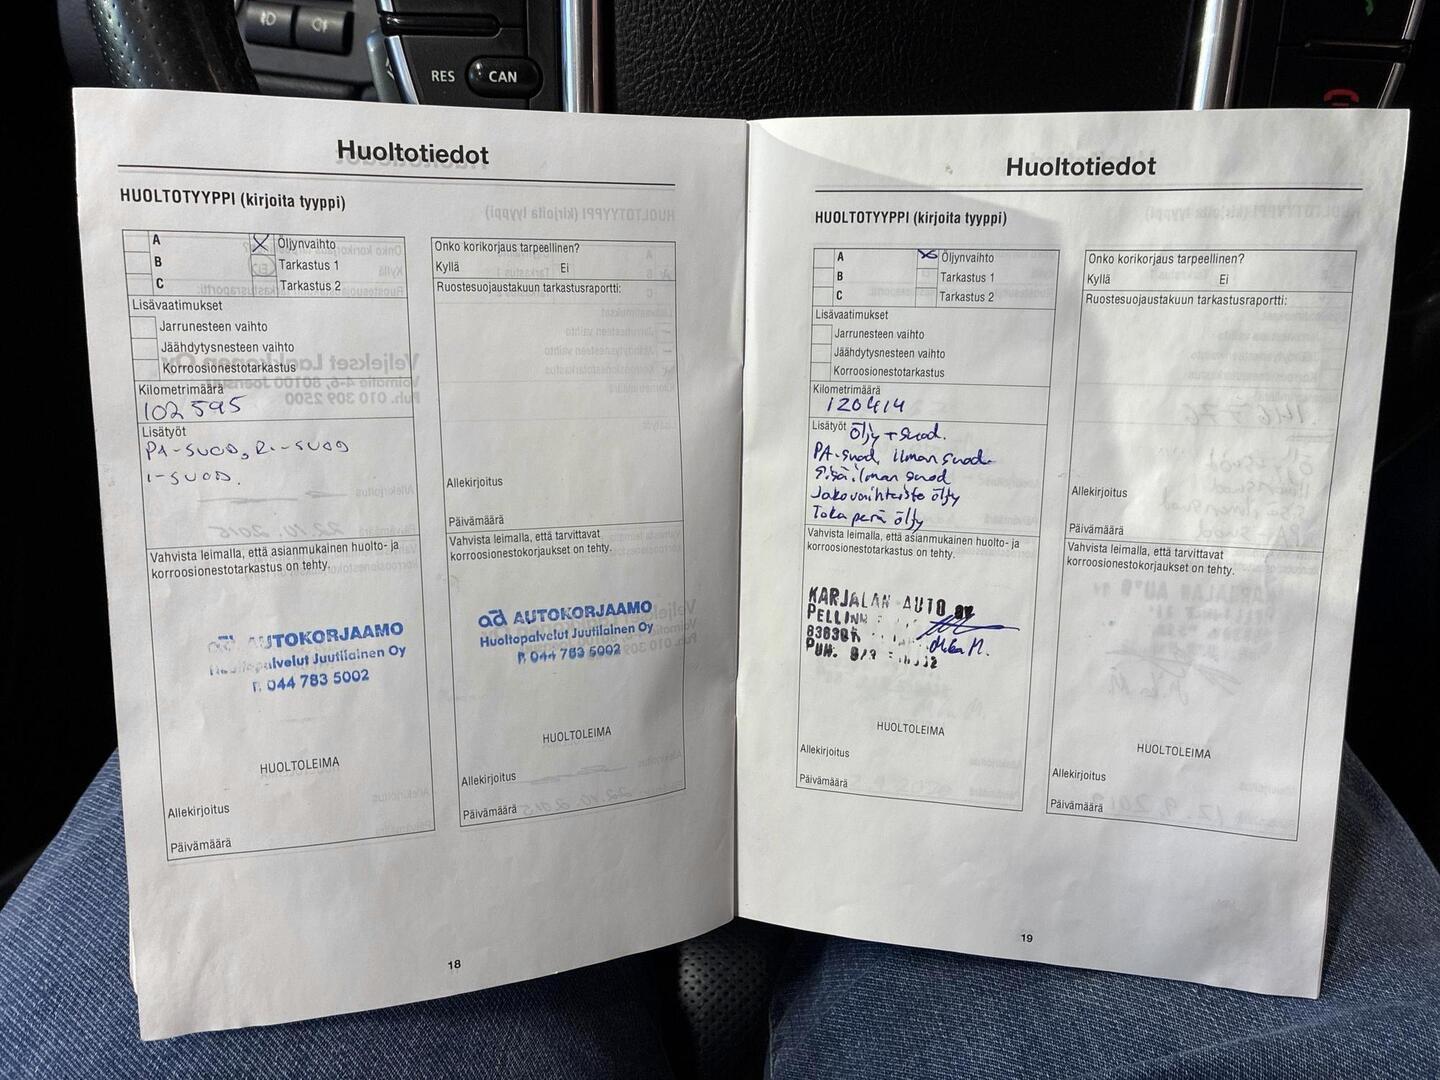 RES
CAN
Huoltotiedot
HUOLTOTYYPPI (kirjoita tyyppi)
A
Öljynvaihto
B
Tarkastus 1
C
Tarkastus 2
Lisävaatimukset
Jarrunesteen vaihto
Jäähdytysnesteen vaihto
Korroosionestotarkastus
Kilometrimäärä
102 595
Lisätyöt
PA-SUOD, RI-SUOD
I-SUOD.
Vahvista leimalla, että asianmukainen huolto- ja
korroosionestotarkastus on tehty.
AUTOKORJAAMO
Huoltopalvelut Juutilainen Oy
P. 044 783 5002
HUOLTOLEIMA
Allekirjoitus
Päivämäärä
Onko korikorjaus tarpeellinen?
Kyllä
Ei
Ruostesuojaustakuun tarkastusraportti:
Allekirjoitus
Päivämäärä
Vahvista leimalla, että tarvittavat
korroosionestokorjaukset on tehty.
ad AUTOKORJAAMO
Huoltopalvelut Juutilainen Oy
P. 044 783 5002
HUOLTOLEIMA
Allekirjoitus
Päivämäärä
18
Huoltotiedot
HUOLTOTYYPPI (kirjoita tyyppi)
A
Öljynvaihto
B
Tarkastus 1
C
Tarkastus 2
Lisävaatimukset
Jarrunesteen vaihto
Jäähdytysnesteen vaihto
Korroosionestotarkastus
Kilometrimäärä
120414
Lisätyöt
Öljy + suod.
PA-suod, ilman suod.
Sisäilman suod
Jakovaihteisto öljy
Taka perä öljy
Vahvista leimalla, että asianmukainen huolto- ja
korroosionestotarkastus on tehty.
KARJALAN AUTO OY
HUOLTOLEIMA
Allekirjoitus
Päivämäärä
Onko korikorjaus tarpeellinen?
Kyllä
Ei
Ruostesuojaustakuun tarkastusraportti:
Allekirjoitus
Päivämäärä
Vahvista leimalla, että tarvittavat
korroosionestokorjaukset on tehty.
HUOLTOLEIMA
Allekirjoitus
Päivämäärä
19